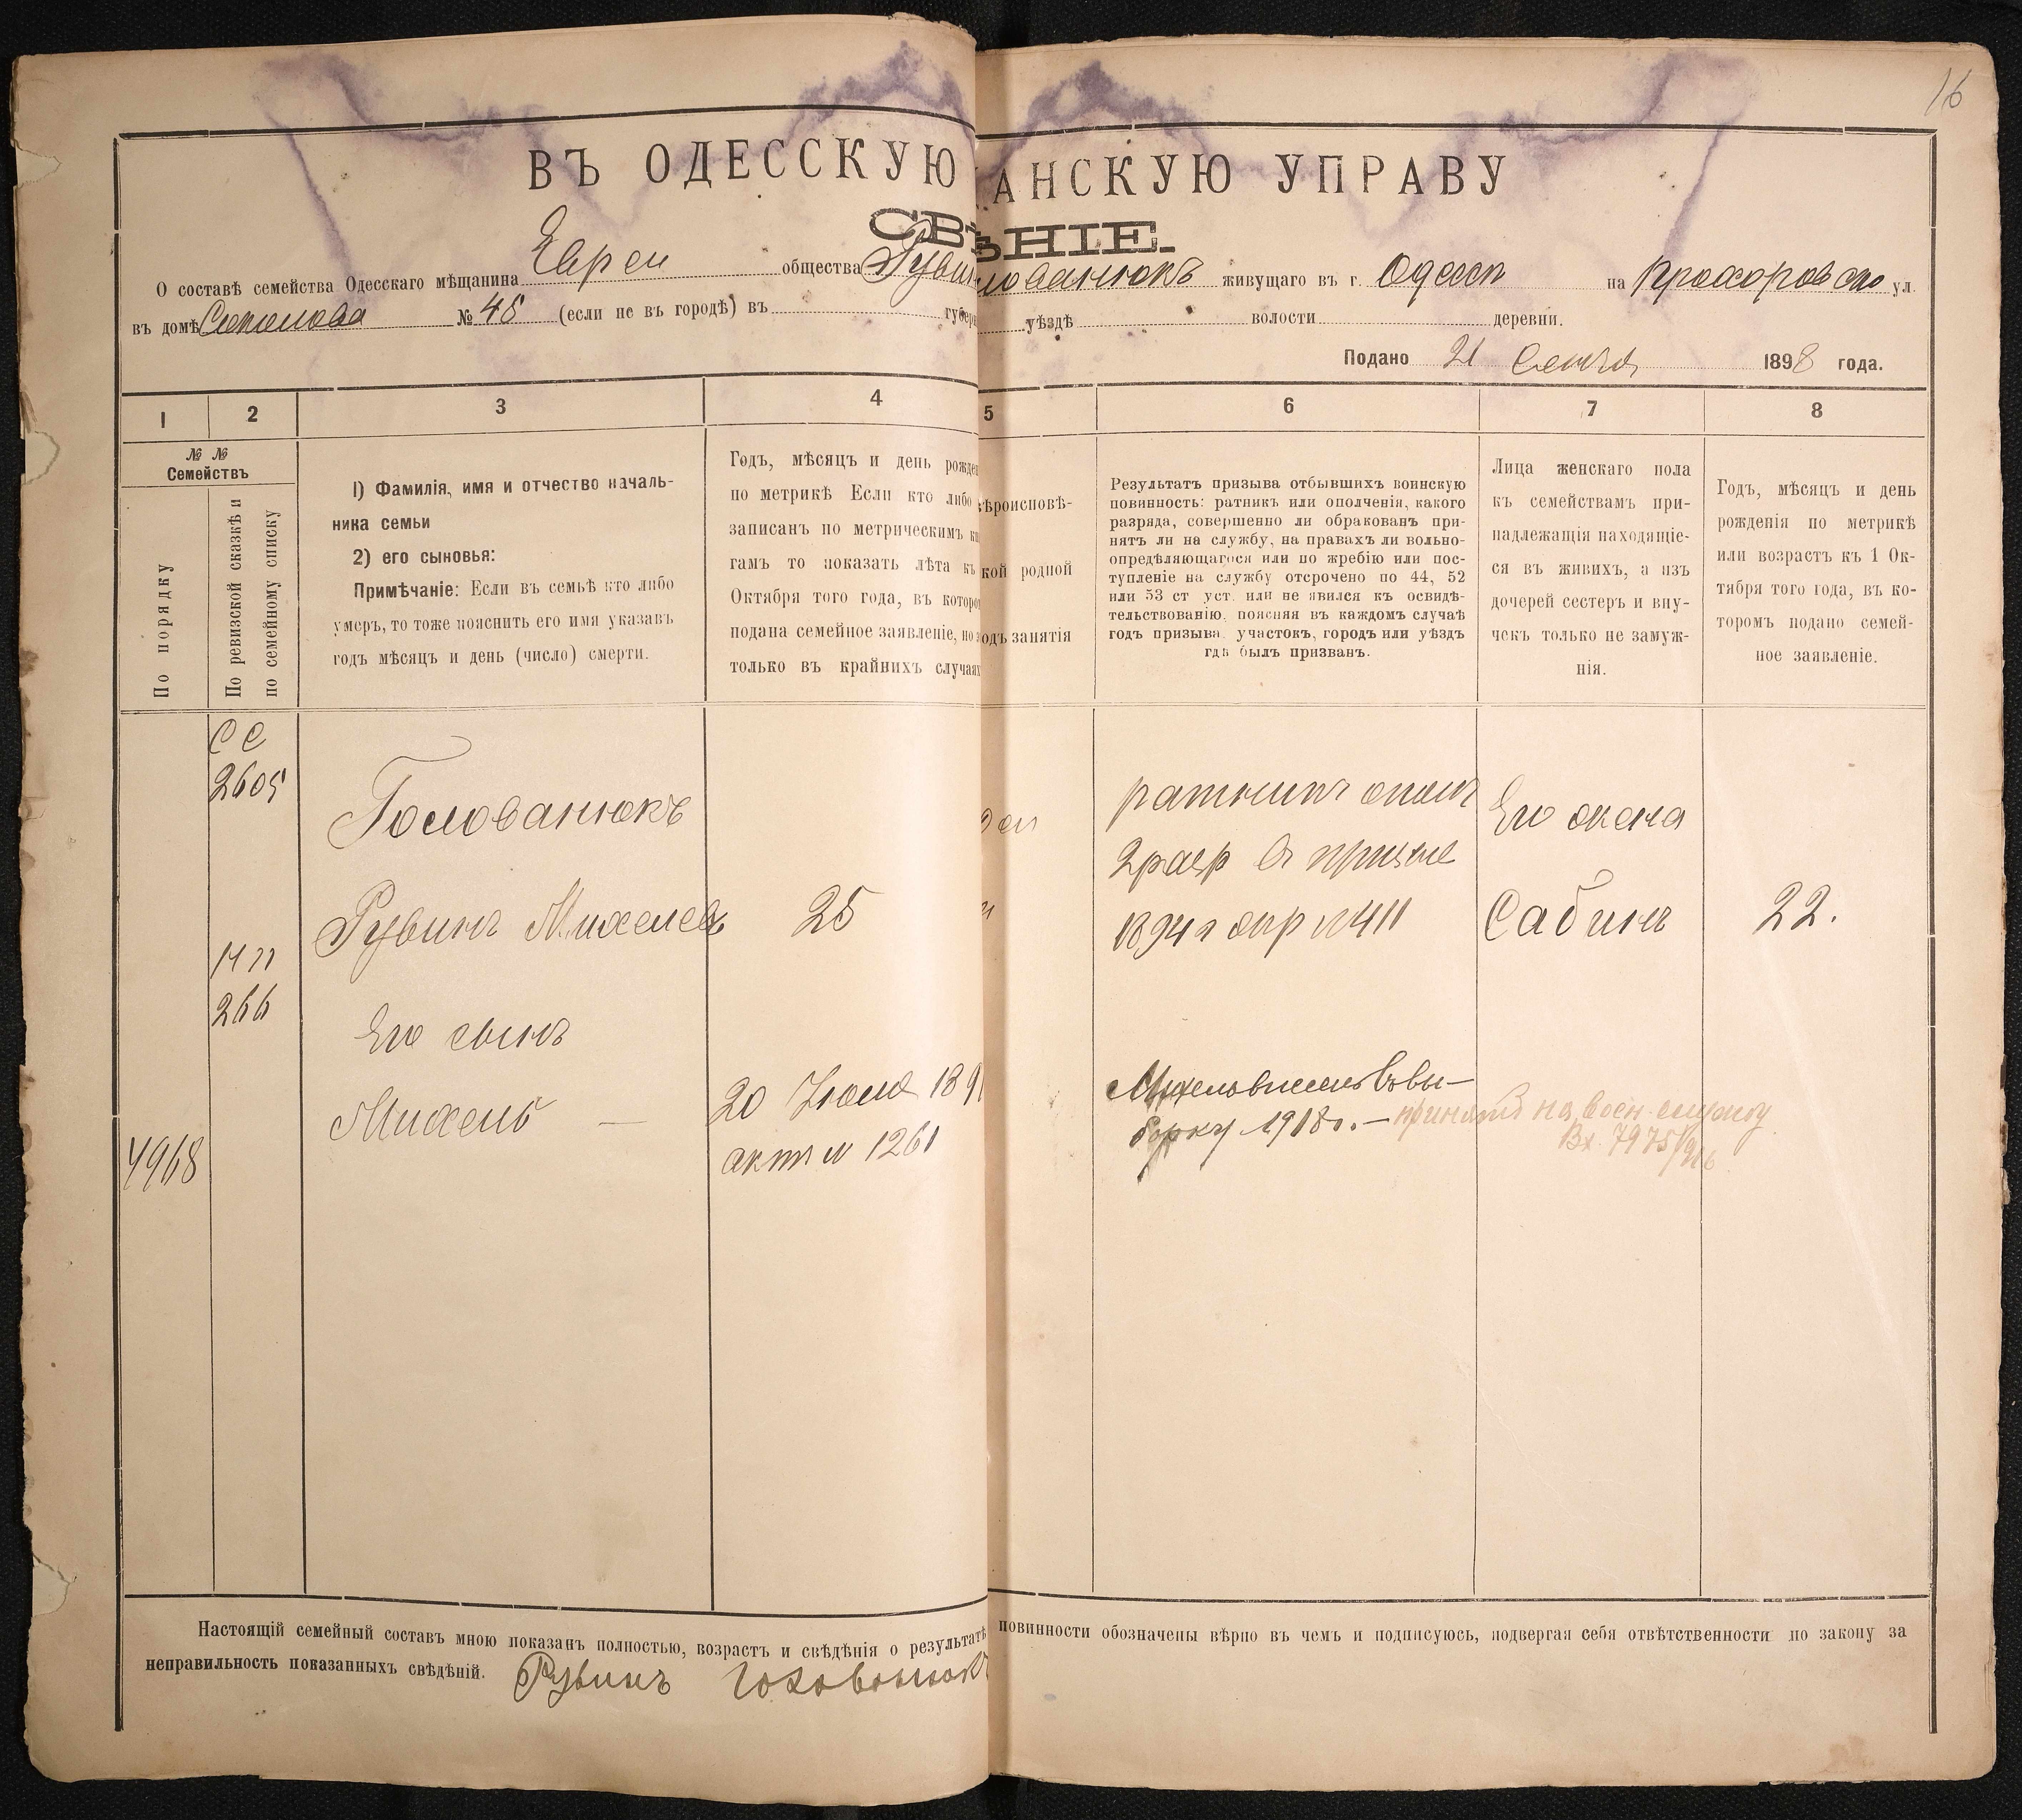 16
ВЪ ОДЕССКУЮ АНСКУЮ УПРАВУ
СВ НІЕ.
О составѣ семейства Одесскаго мѣщанина Евреи общества Руви лованюкъ живущаго въ г. Одесси на Прохоровско ул.
въ домѣ Соколова № 45 (если не въ городѣ) въ губерн уѣздѣ волости деревни.
Подано 21 Сентя 1898 года.
1 2 3 4 5 6 7 8
№ №
Семействъ
По порядку
По ревизской сказкѣ и
по семейному списку
1) Фамилія, имя и отчество началь-
ника семьи
2) его сыновья:
Примѣчаніе: Если въ семьѣ кто либо
умеръ, то тоже пояснить его имя указавъ
годъ мѣсяцъ и день (число) смерти.
Годъ, мѣсяцъ и день рожде
по метрикѣ Если кто либо
записанъ по метрическимъ кн
гамъ то показать лѣта къ
Октября того года, въ которо
подана семейное заявленіе, но
только въ крайнихъ случаях
ѣроисповѣ-
кой родной
одъ занятія
Результатъ призыва отбывшихъ воинскую
повинность: ратникъ или ополченія, какого
разряда, совершенно ли обракованъ при-
нятъ ли на службу, на правахъ ли вольно-
опредѣляющагося или по жребію или пос-
тупленіе на службу отсрочено по 44, 52
или 53 ст уст. или не явился къ освидѣ-
тельствованію, поясняя въ каждомъ случаѣ
годъ призыва, участокъ, городъ или уѣздъ
гдѣ былъ призванъ.
Лица женскаго пола
къ семействамъ при-
надлежащія находящіе-
ся въ живихъ, а изъ
дочерей сестеръ и вну-
чекъ только не замуж-
нія.
Годъ, мѣсяцъ и день
рожденія по метрикѣ
или возрастъ къ 1 Ок-
тября того года, въ ко-
торомъ подано семей-
ное заявленіе.
СС
2605
Голованюкъ
ратникъ опол
Его жена
2 разр въ призыве
Рувинъ Михелевъ 25
1894 г № 411
Сабинъ 22.
266
Его сынъ
Михель — 20 Іюля 189
актъ № 1261
Михель внесенъ въ вы-
борку 1918 г. — принятъ на воен. службу
Вх. 7975/916
4968
Настоящій семейный составъ мною показанъ полностью, возрастъ и свѣдѣнія о результатѣ повинности обозначены вѣрно въ чемъ и подписуюсь, подвергая себя отвѣтственности по закону за
неправильность показанныхъ свѣдѣній. Рувинъ Голованюк